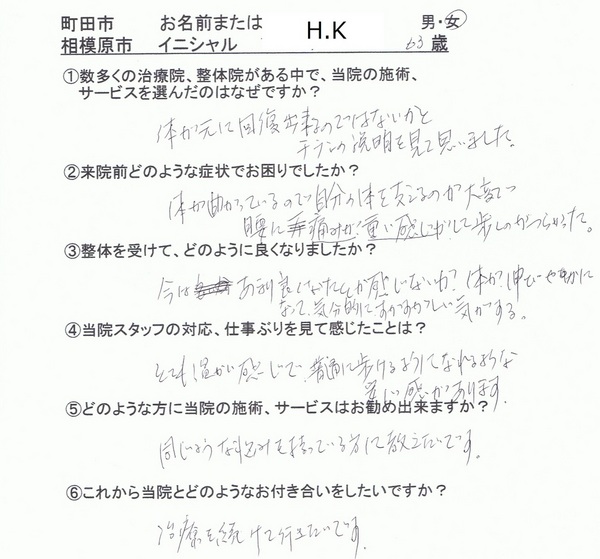 町田市 お名前または H.K 男・女
相模原市 イニシャル 63歳
①数多くの治療院、整体院がある中で、当院の施術、
サービスを選んだのはなぜですか？
体が元に回復出来るのではないかと
チラシの説明を見て思いました。
②来院前どのような症状でお困りでしたか？
体が曲がっているので自分の体を支えるのが大変で
腰に痛みが！重い感じがして歩くのがつらかった。
③整体を受けて、どのように良くなりましたか？
今はあまり良くなったことが感じないが？体が伸びやかに
なって、気分的にすがすがしい気がする。
④当院スタッフの対応、仕事ぶりを見て感じたことは？
とても温かい感じで、普通に歩けるようになれるような
良い感があります。
⑤どのような方に当院の施術、サービスはお勧め出来ますか？
同じような悩みを持っている方に教えたいです。
⑥これから当院とどのようなお付き合いをしたいですか？
治療を続けて行きたいです。